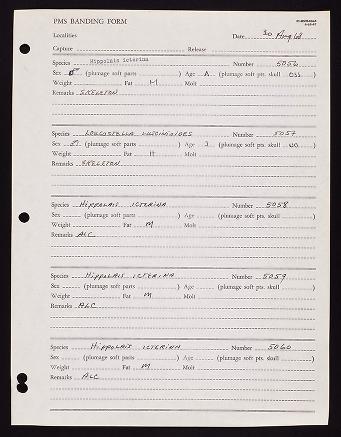 PMS BANDING FORM
Localities Date 30 Aug 68
Capture Release
Species Hippolais icterina Number 5056
Sex ♂ (plumage soft parts ) Age A (plumage soft pts. skull oss )
Weight Fat M Molt
Remarks SKELETON
Species LOCUSTELLA LUSCINIOIDES Number 5057
Sex ♂ (plumage soft parts ) Age J (plumage soft pts. skull uo )
Weight Fat H Molt
Remarks SKELETON
Species HIPPOLAIS ICTERINA Number 5058
Sex (plumage soft parts ) Age (plumage soft pts. skull )
Weight Fat M Molt
Remarks ALC
Species HIPPOLAIS ICTERINA Number 5059
Sex (plumage soft parts ) Age (plumage soft pts. skull )
Weight Fat M Molt
Remarks ALC
Species HIPPOLAIS ICTERINA Number 5060
Sex (plumage soft parts ) Age (plumage soft pts. skull )
Weight Fat M Molt
Remarks ALC